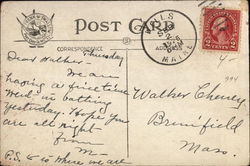 POST CARD
CORRESPONDENCE
MAINE
Thursday
Dear Walter -
We are
having a fine time
Went in bathing
yesterday. Hope you
are all right
From
M
P.S. is where we are
Walter Cheney
Brimfield
Mass.